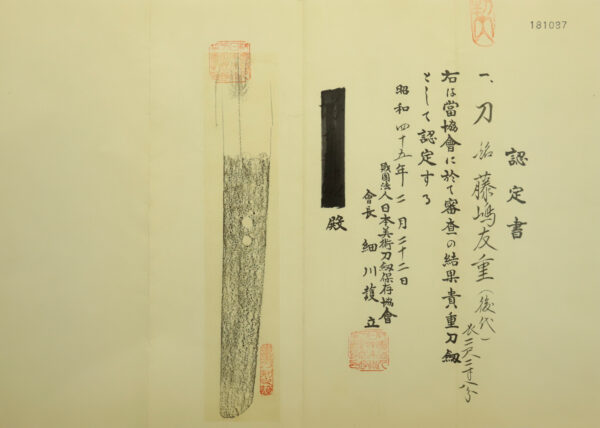 認定書
一、刀 銘 藤嶋友重(後代)
長二尺二寸 分
右は當協會に於て審査の結果貴重刀剱
として認定する
昭和四十五年二月二十二日
財團法人日本美術刀剱保存協會
會長 細川護立
殿